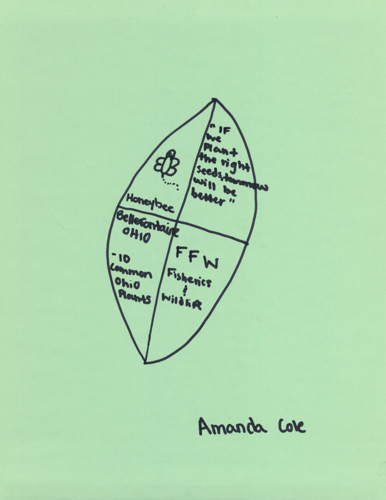 "IF
we
Plant
the right
seeds, tomorrow
will be
better"
Honeybee
Bellefontaine
OHIO
-ID
Common
Ohio
Plants
FFW
Fisheries
&
Wildlife
Amanda Cole